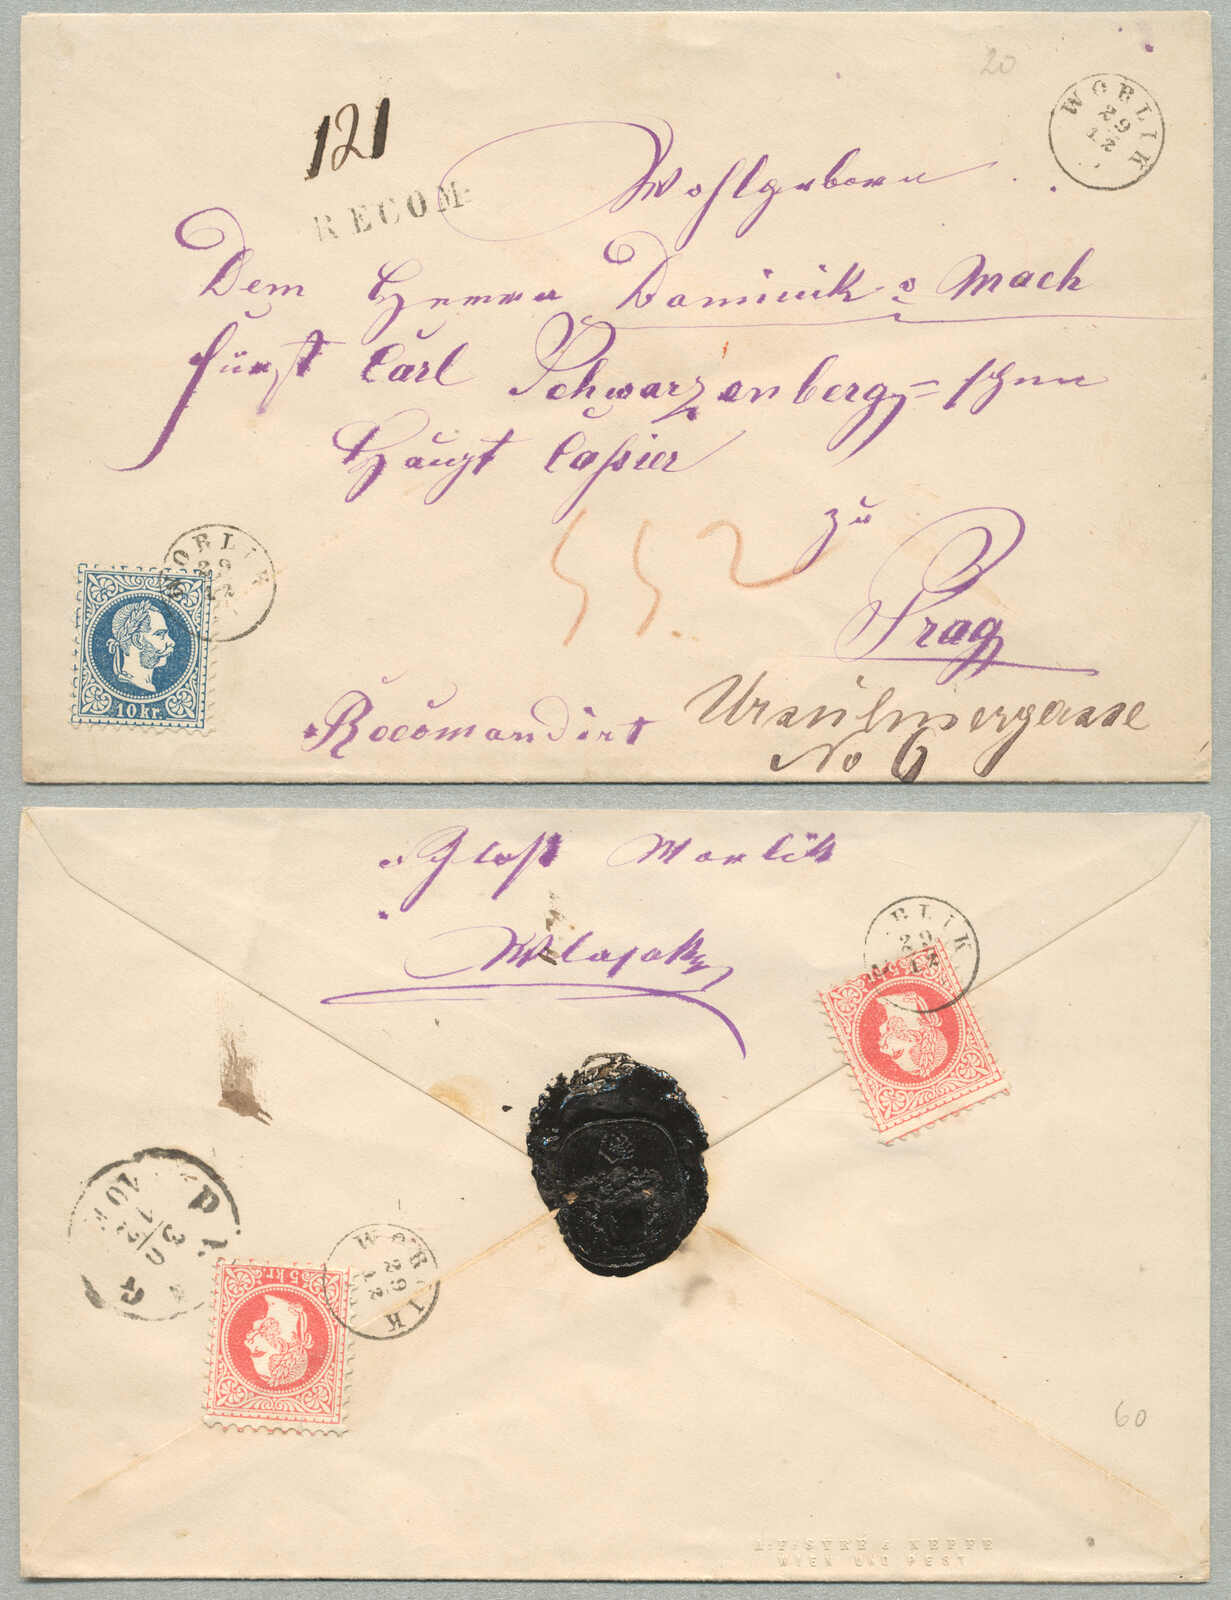 20
WORLIK
29
12
121
RECOM:
Wohlgeboren
Dem Herrn Dominik Mach
Fürst Carl Schwarzenberg=schen
Haupt Cassier
zu
Prag
552
WORLIK
29
12
10 kr.
Recomandirt
Ursulinergasse
No 6
Schloß Worlik
WORLIK
29
12
5 kr.
PRAG
30
12
WORLIK
29
12
5 kr.
60
A. F. SYRÉ & NEFFE
WIEN UND PEST